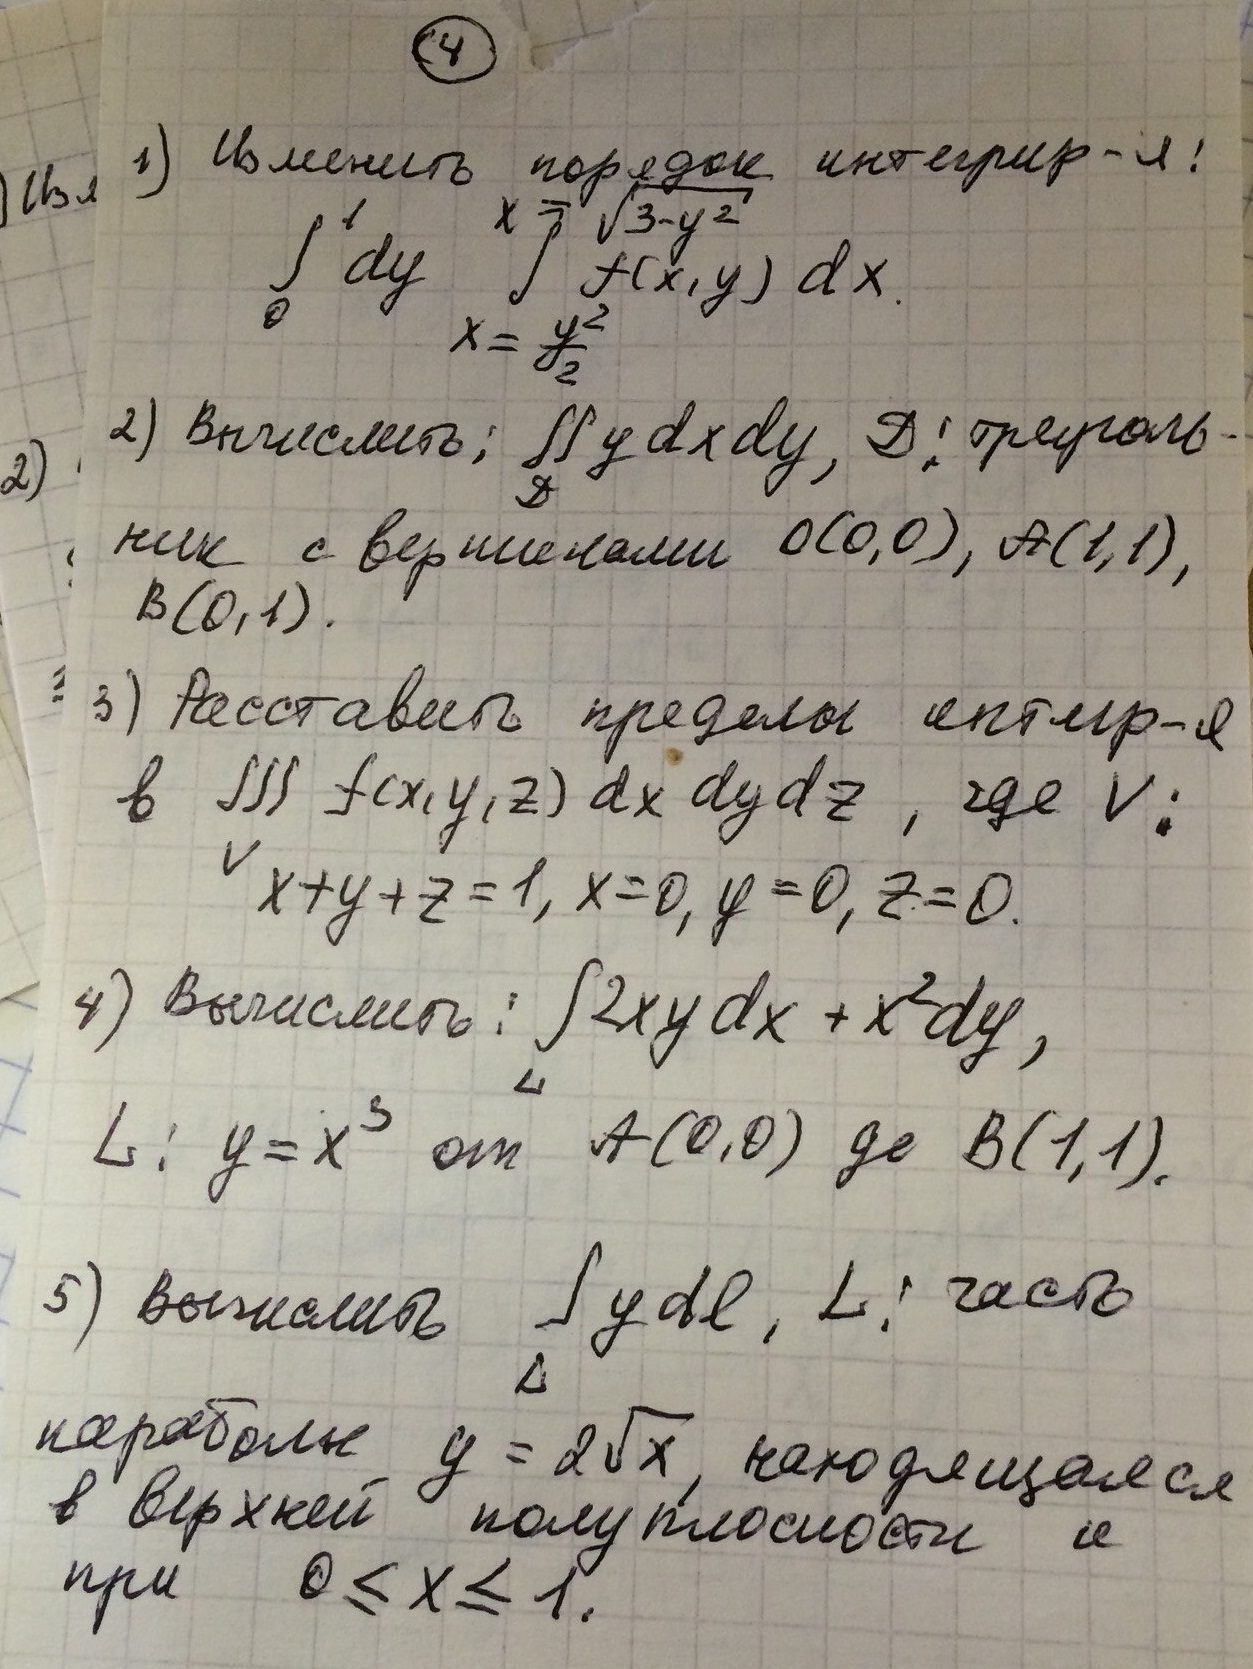 (4)
1) Изменить порядок интегрир-я:
∫₀¹ dy ∫ f(x,y) dx. x = √3-y² x = y²/2
2) Вычислить: ∬ y dx dy, D: треуголь-
D
ник с вершинами O(0,0), A(1,1),
B(0,1).
3) Расставить пределы интегр-я
в ∭ f(x,y,z) dx dy dz, где V:
V
x+y+z=1, x=0, y=0, z=0.
4) Вычислить: ∫ 2xy dx + x² dy,
L
L: y = x³ от A(0,0) до B(1,1).
5) Вычислить ∫ y dl, L: часть
L
параболы y = 2√x, находящаяся
в верхней полуплоскости и
при 0 ≤ x ≤ 1.
) Изм
2)